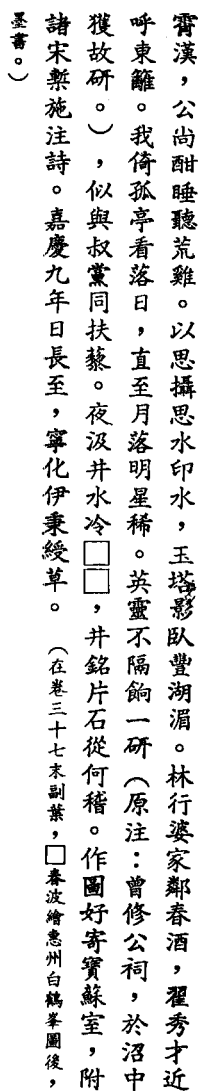 霄漢，公尚酣睡聽荒雞。以思攝思水印水，玉塔影臥豐湖湄。林行婆家鄰春酒，翟秀才近
呼東籬。我倚孤亭看落日，直至月落明星稀。英靈不隔餉一硏（原注：曾修公祠，於沼中
獲故硏。），似與叔黨同扶藜。夜汲井水冷□□，井銘片石從何稽。作圖好寄寶蘇室，附
諸宋槧施注詩。嘉慶九年日長至，寧化伊秉綬草。（在卷三十七末副葉，□春波繪惠州白鶴峯圖後，
墨書。）